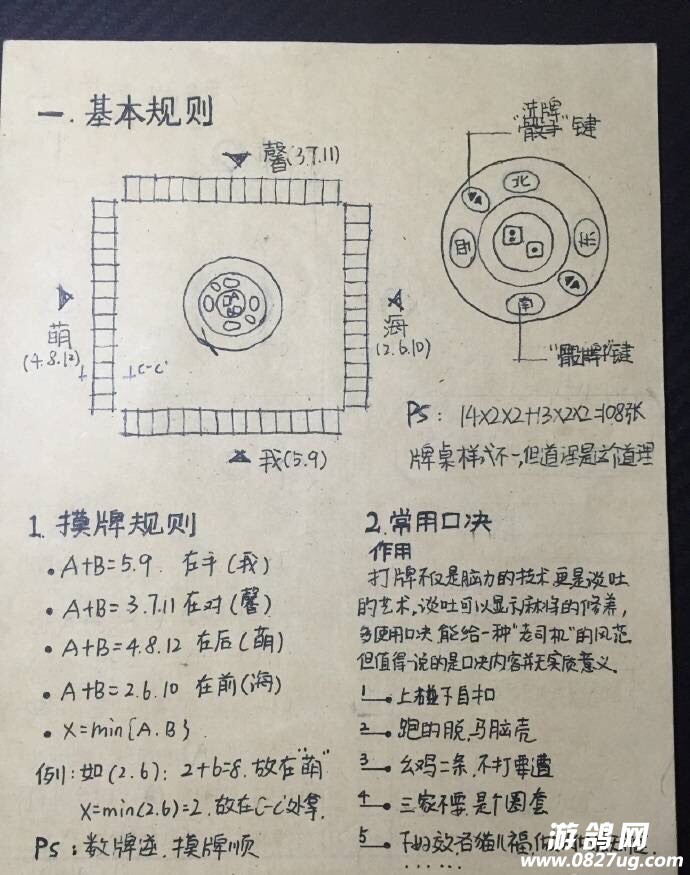 一.基本规则
馨(3.7.11)
萌
(4.8.12)
C-C'
海
(2.6.10)
我(5.9)
洗牌
"骰子"键
北
西
东
南
"骰牌"键
PS: 14×2×2+13×2×2=108张
牌桌样式不一,但道理是这个道理
1.摸牌规则
• A+B=5.9. 在手(我)
• A+B=3.7.11 在对(馨)
• A+B=4.8.12 在后(萌)
• A+B=2.6.10 在前(海)
• X=min{A.B}
例1:如(2.6): 2+6=8. 放在"萌"
X=min(2.6)=2. 放在C-C'处拿.
PS:数牌逆.摸牌顺
2.常用口决
作用
打牌不仅是脑力的技术,更是谈吐
的艺术,谈吐可以显示麻将的修养,
多使用口决 能给一种"老司机"的风范
但值得一说的是口决内容并无实质意义.
1 上碰下自扣
2 跑的脱,马脑壳
3 幺鸡二条,不打要遭
4 三家不要,是个圈套
5
......
游鸽网
www.0827ug.com